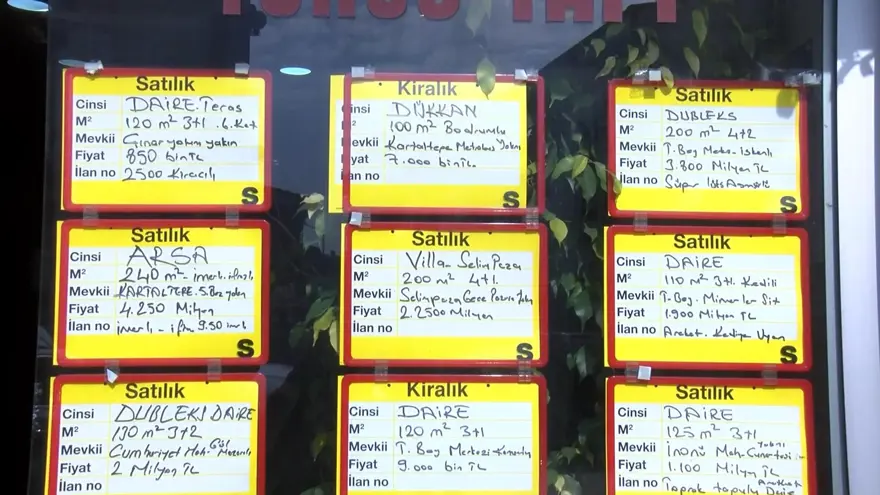 Satılık
Cinsi DAİRE. Teras
M² 120 m² 3+1 . 6. Kat
Mevkii Çınar yakın
Fiyat 850 bin TL
İlan no 2500 Kiracılı
S
Kiralık
Cinsi DÜKKAN
M² 100 m² Bodrumlu
Mevkii Kartaltepe Metrobüs Yakın
Fiyat 7.000 bin TL
İlan no
S
Satılık
Cinsi DUBLEKS
M² 200 m² 4+2
Mevkii T. Boy İskanlı
Fiyat 3.800 Milyon TL
İlan no Süper
S
Satılık
Cinsi ARSA
M² 240 m² - imarlı
Mevkii KARTALTEPE
Fiyat 4.250 Milyon
İlan no imarlı - 9.50
S
Satılık
Cinsi Villa - Selimpaşa
M² 200 m² 4+1
Mevkii Selimpaşa
Fiyat 2.2500 Milyon
İlan no
S
Satılık
Cinsi DAİRE
M² 110 m² 3+1
Mevkii T. Boy. Mimarlar Sit
Fiyat 1.900 Milyon TL
İlan no Krediye Uygun
S
Satılık
Cinsi DUBLEKS DAİRE
M² 190 m² 3+2
Mevkii Cumhuriyet Mah.
Fiyat 2 Milyon TL
İlan no
Kiralık
Cinsi DAİRE
M² 120 m² 3+1
Mevkii T. Boy Merkezi Konumlu
Fiyat 9.000 bin TL
İlan no
Satılık
Cinsi DAİRE
M² 125 m² 3+1
Mevkii İnönü Mah.
Fiyat 1.100 Milyon TL
İlan no Toprak tapulu